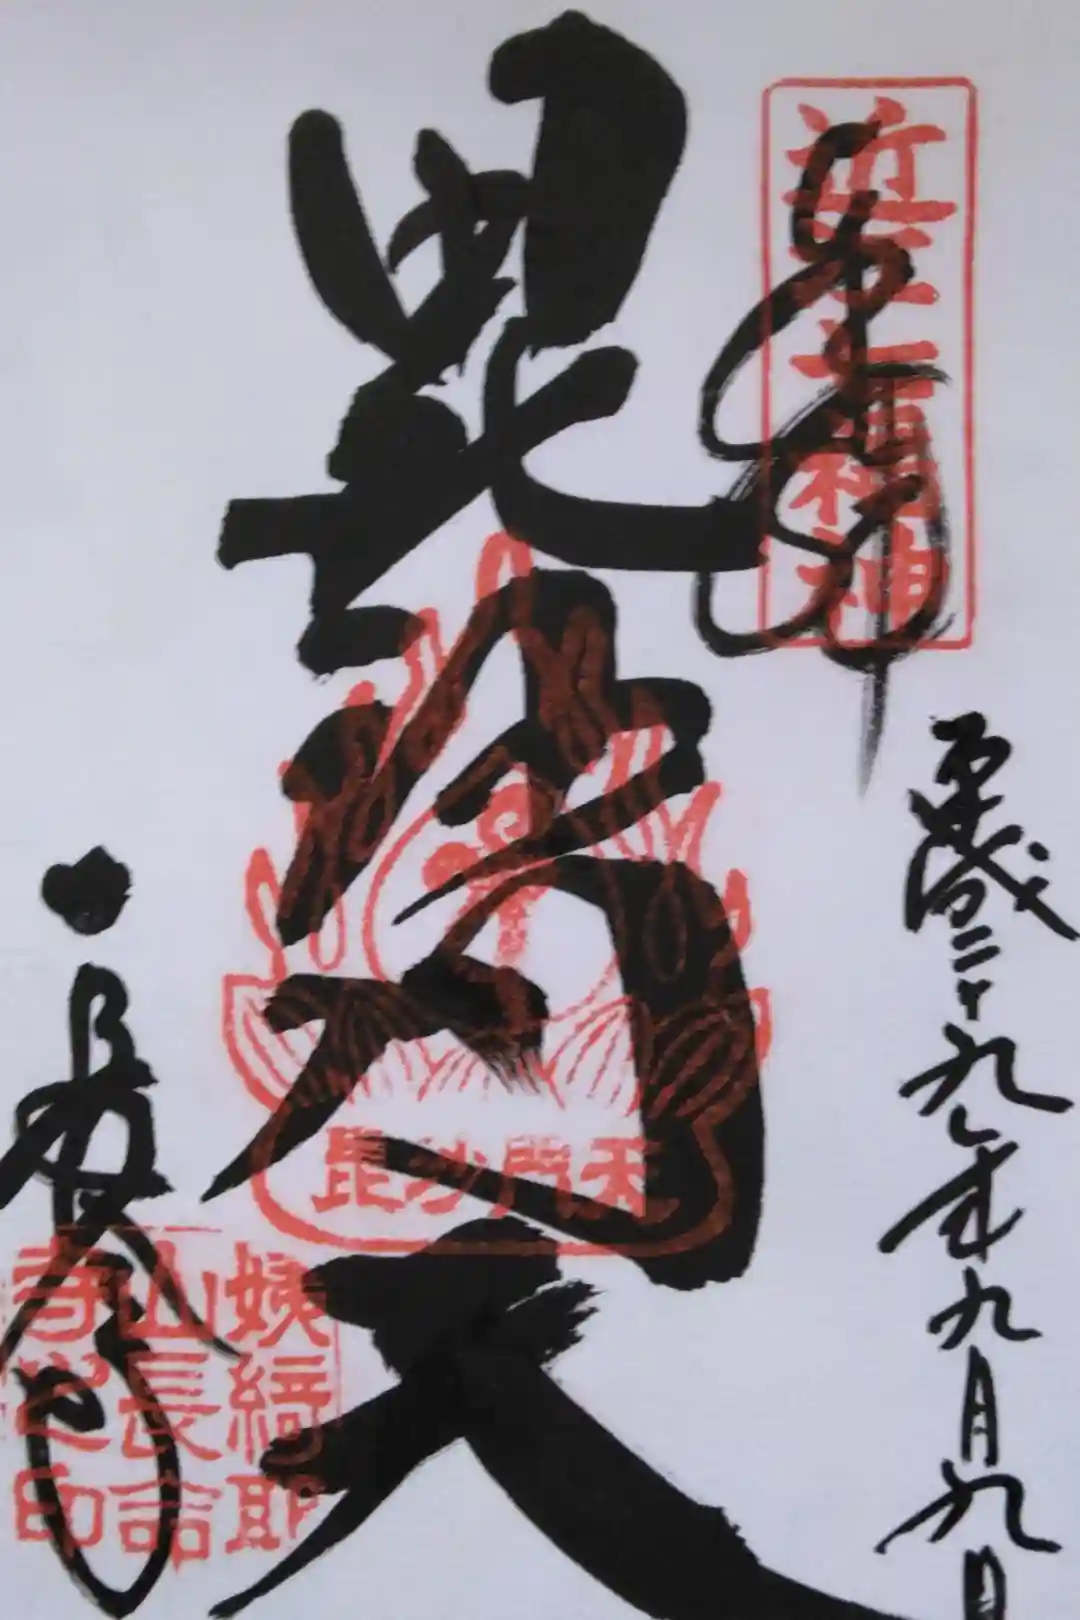 近江七福神
奉拝
平成二十九年九月九日
毘沙門天
毘沙門天
長命寺
姨綺耶
山長命
寺之印